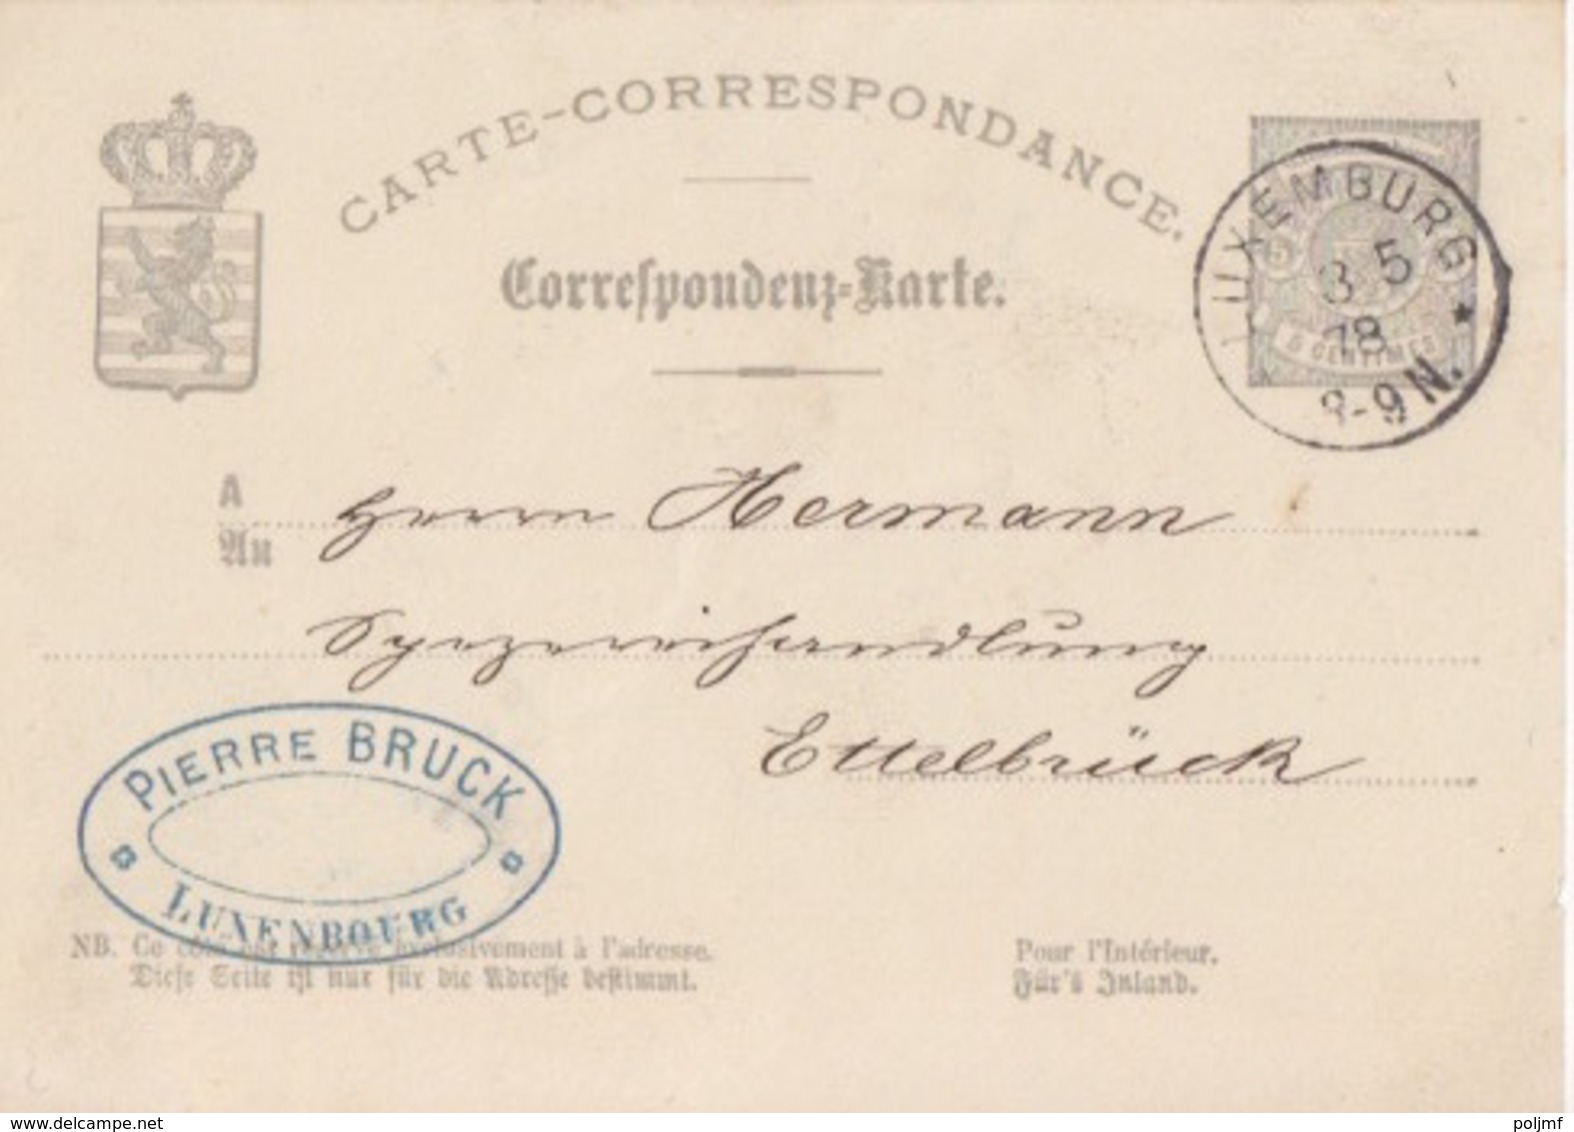 CARTE-CORRESPONDANCE.
Correspondenz-Karte.
LUXEMBURG
3 5
78
8-9N.
5
5 CENTIMES
A
An
Herrn Hermann
Spezereihandlung
Ettelbrück
PIERRE BRUCK
LUXENBOURG
NB. Ce côté est réservé exclusivement à l'adresse.
Diese Seite ist nur für die Adresse bestimmt.
Pour l'Intérieur.
Für's Inland.
www.delcampe.net
poljmf